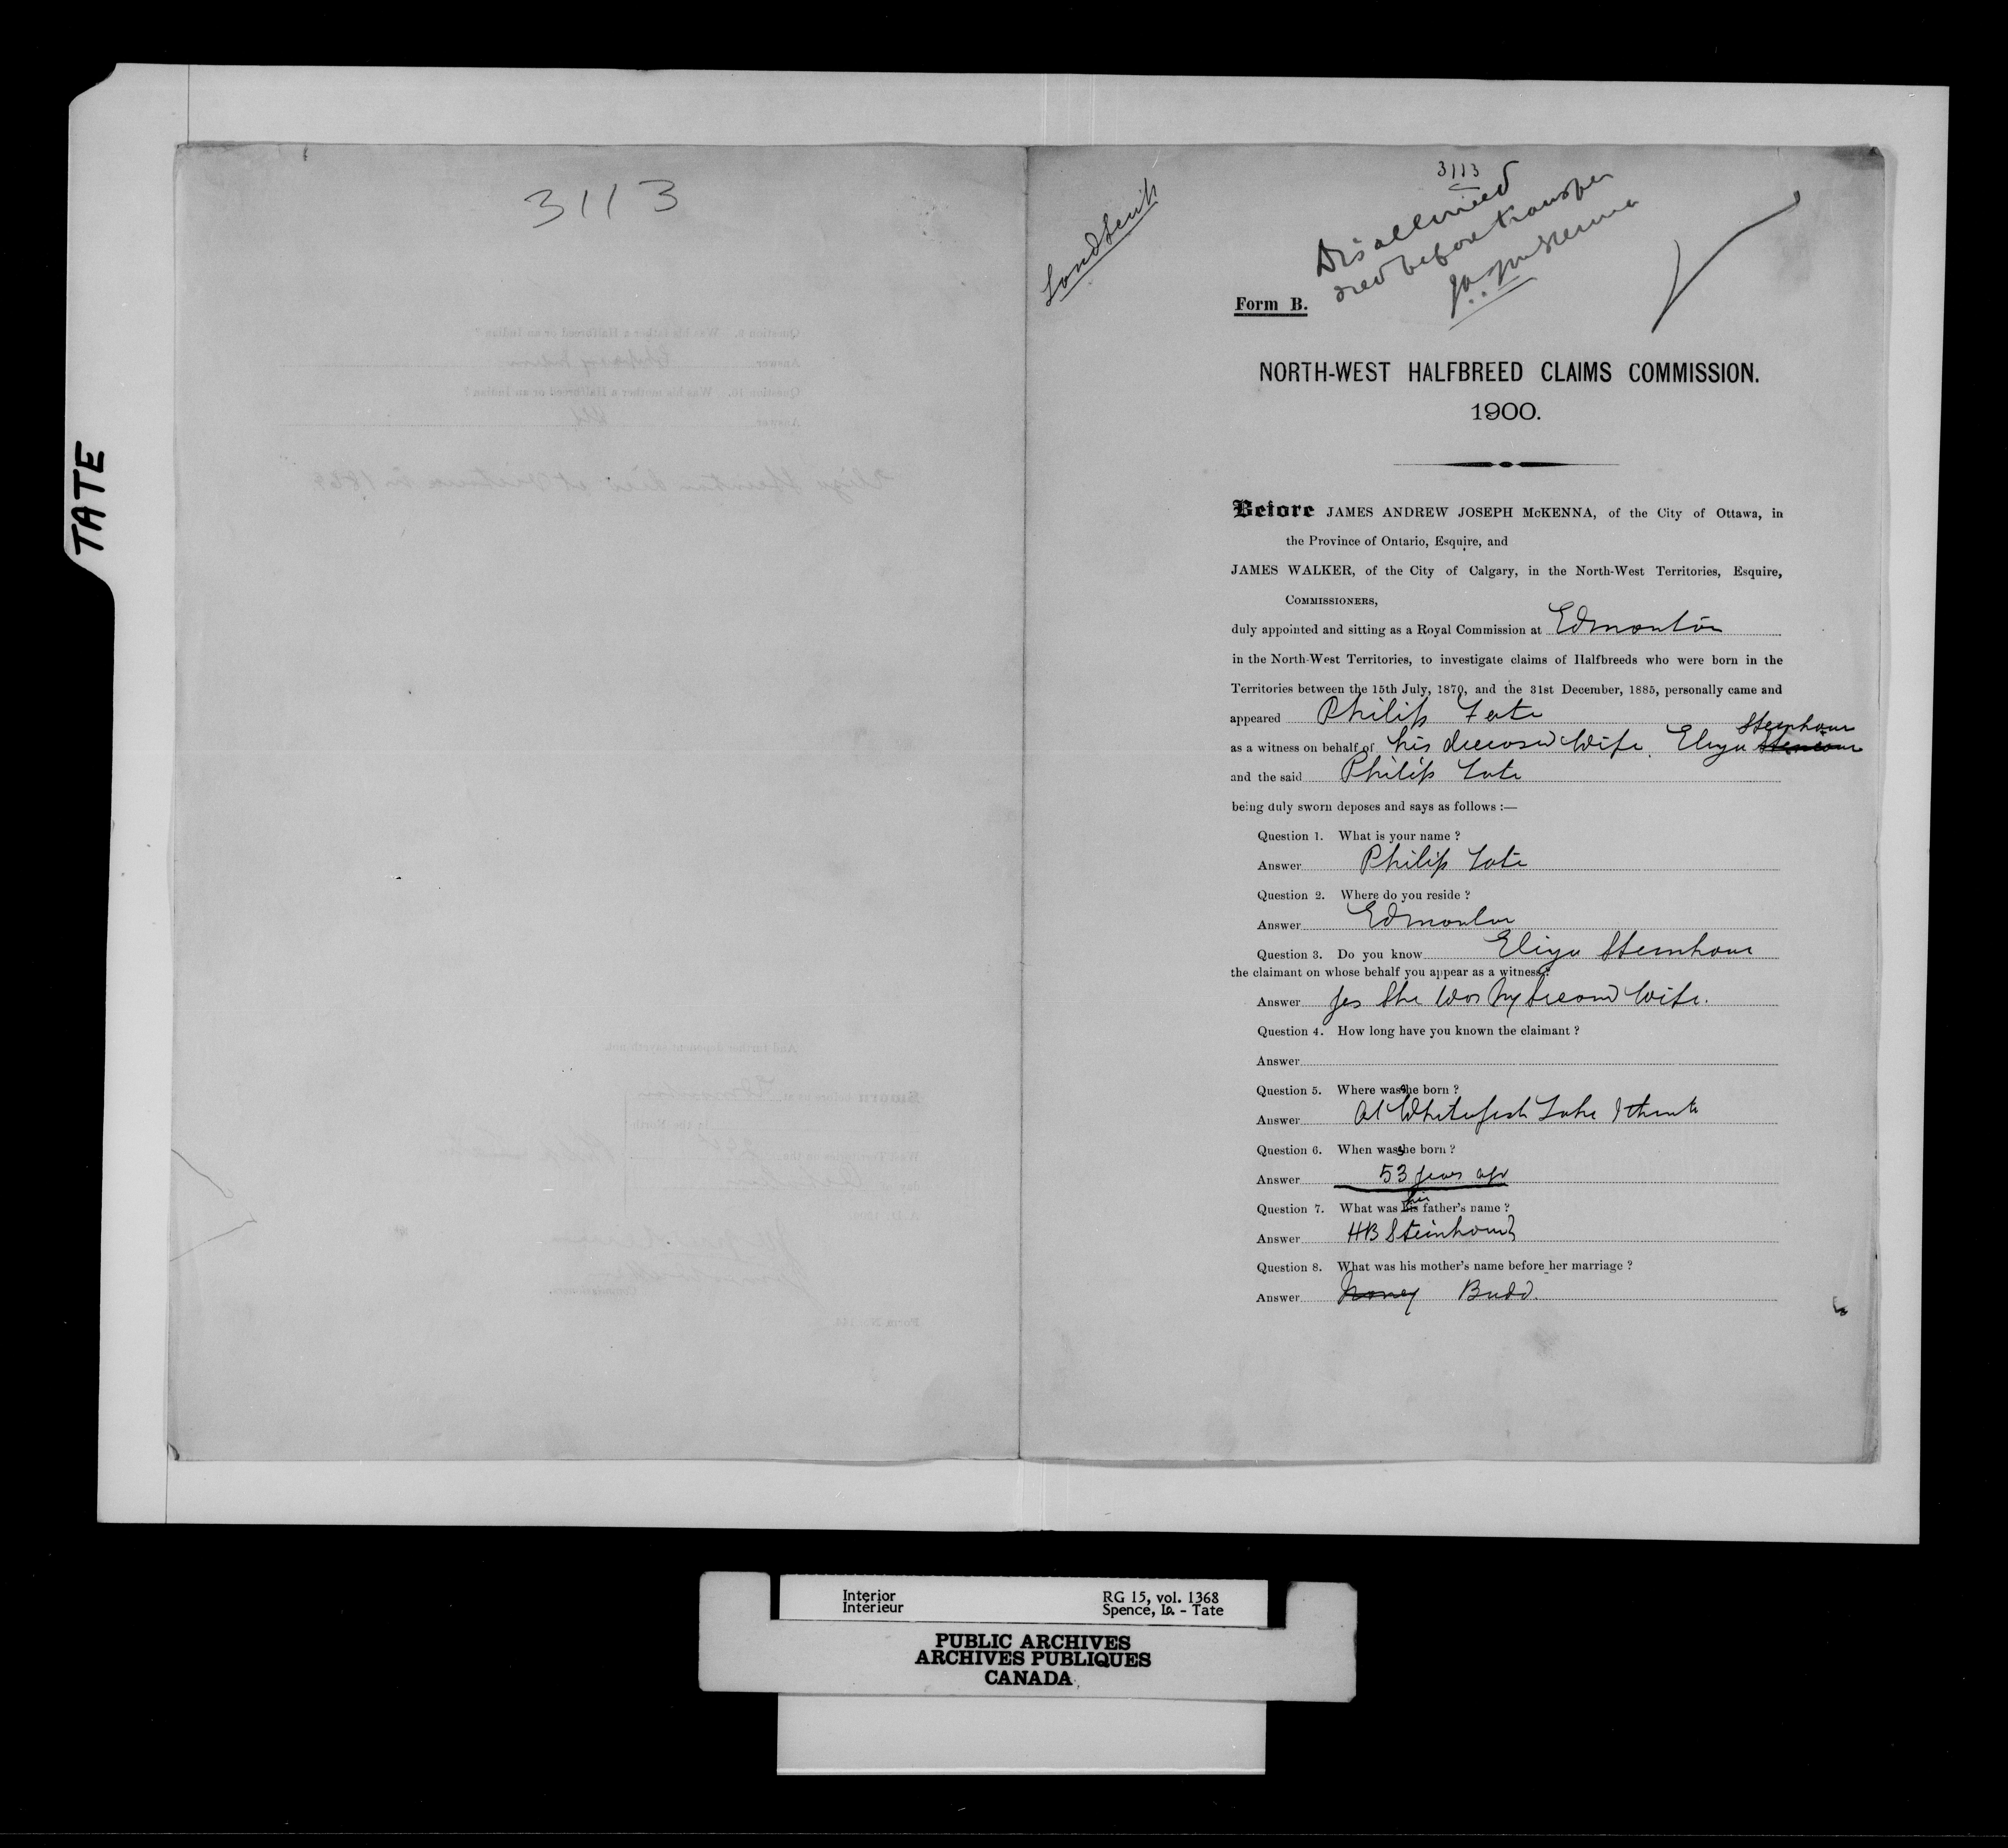 TATE
3113
Land Scrip
3113
Disallowed
died before transfer
Form B.
NORTH-WEST HALFBREED CLAIMS COMMISSION.
1900.
Before JAMES ANDREW JOSEPH McKENNA, of the City of Ottawa, in
the Province of Ontario, Esquire, and
JAMES WALKER, of the City of Calgary, in the North-West Territories, Esquire,
COMMISSIONERS,
duly appointed and sitting as a Royal Commission at Edmonton
in the North-West Territories, to investigate claims of Halfbreeds who were born in the
Territories between the 15th July, 1870, and the 31st December, 1885, personally came and
appeared Philip Tate
Steinhaur
as a witness on behalf of his deceased Wife Eliza
and the said Philip Tate
being duly sworn deposes and says as follows :—
Question 1. What is your name ?
Answer Philip Tate
Question 2. Where do you reside ?
Answer Edmonton
Question 3. Do you know Eliza Steinhaur
the claimant on whose behalf you appear as a witness ?
Answer Yes She was My Second Wife.
Question 4. How long have you known the claimant ?
Answer
Question 5. Where was she born ?
Answer At Whitefish Lake I think
Question 6. When was she born ?
Answer 53 years ago
Question 7. What was his her father's name ?
Answer HB Steinhaur
Question 8. What was his mother's name before her marriage ?
Answer Budd.
Interior
Intérieur
RG 15, vol. 1368
Spence, Ia. - Tate
PUBLIC ARCHIVES
ARCHIVES PUBLIQUES
CANADA